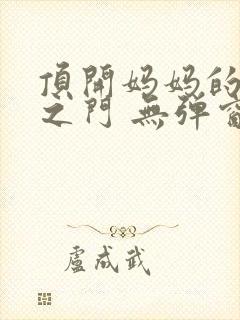 頂開妈妈的
之门 無弹窗
盧成武